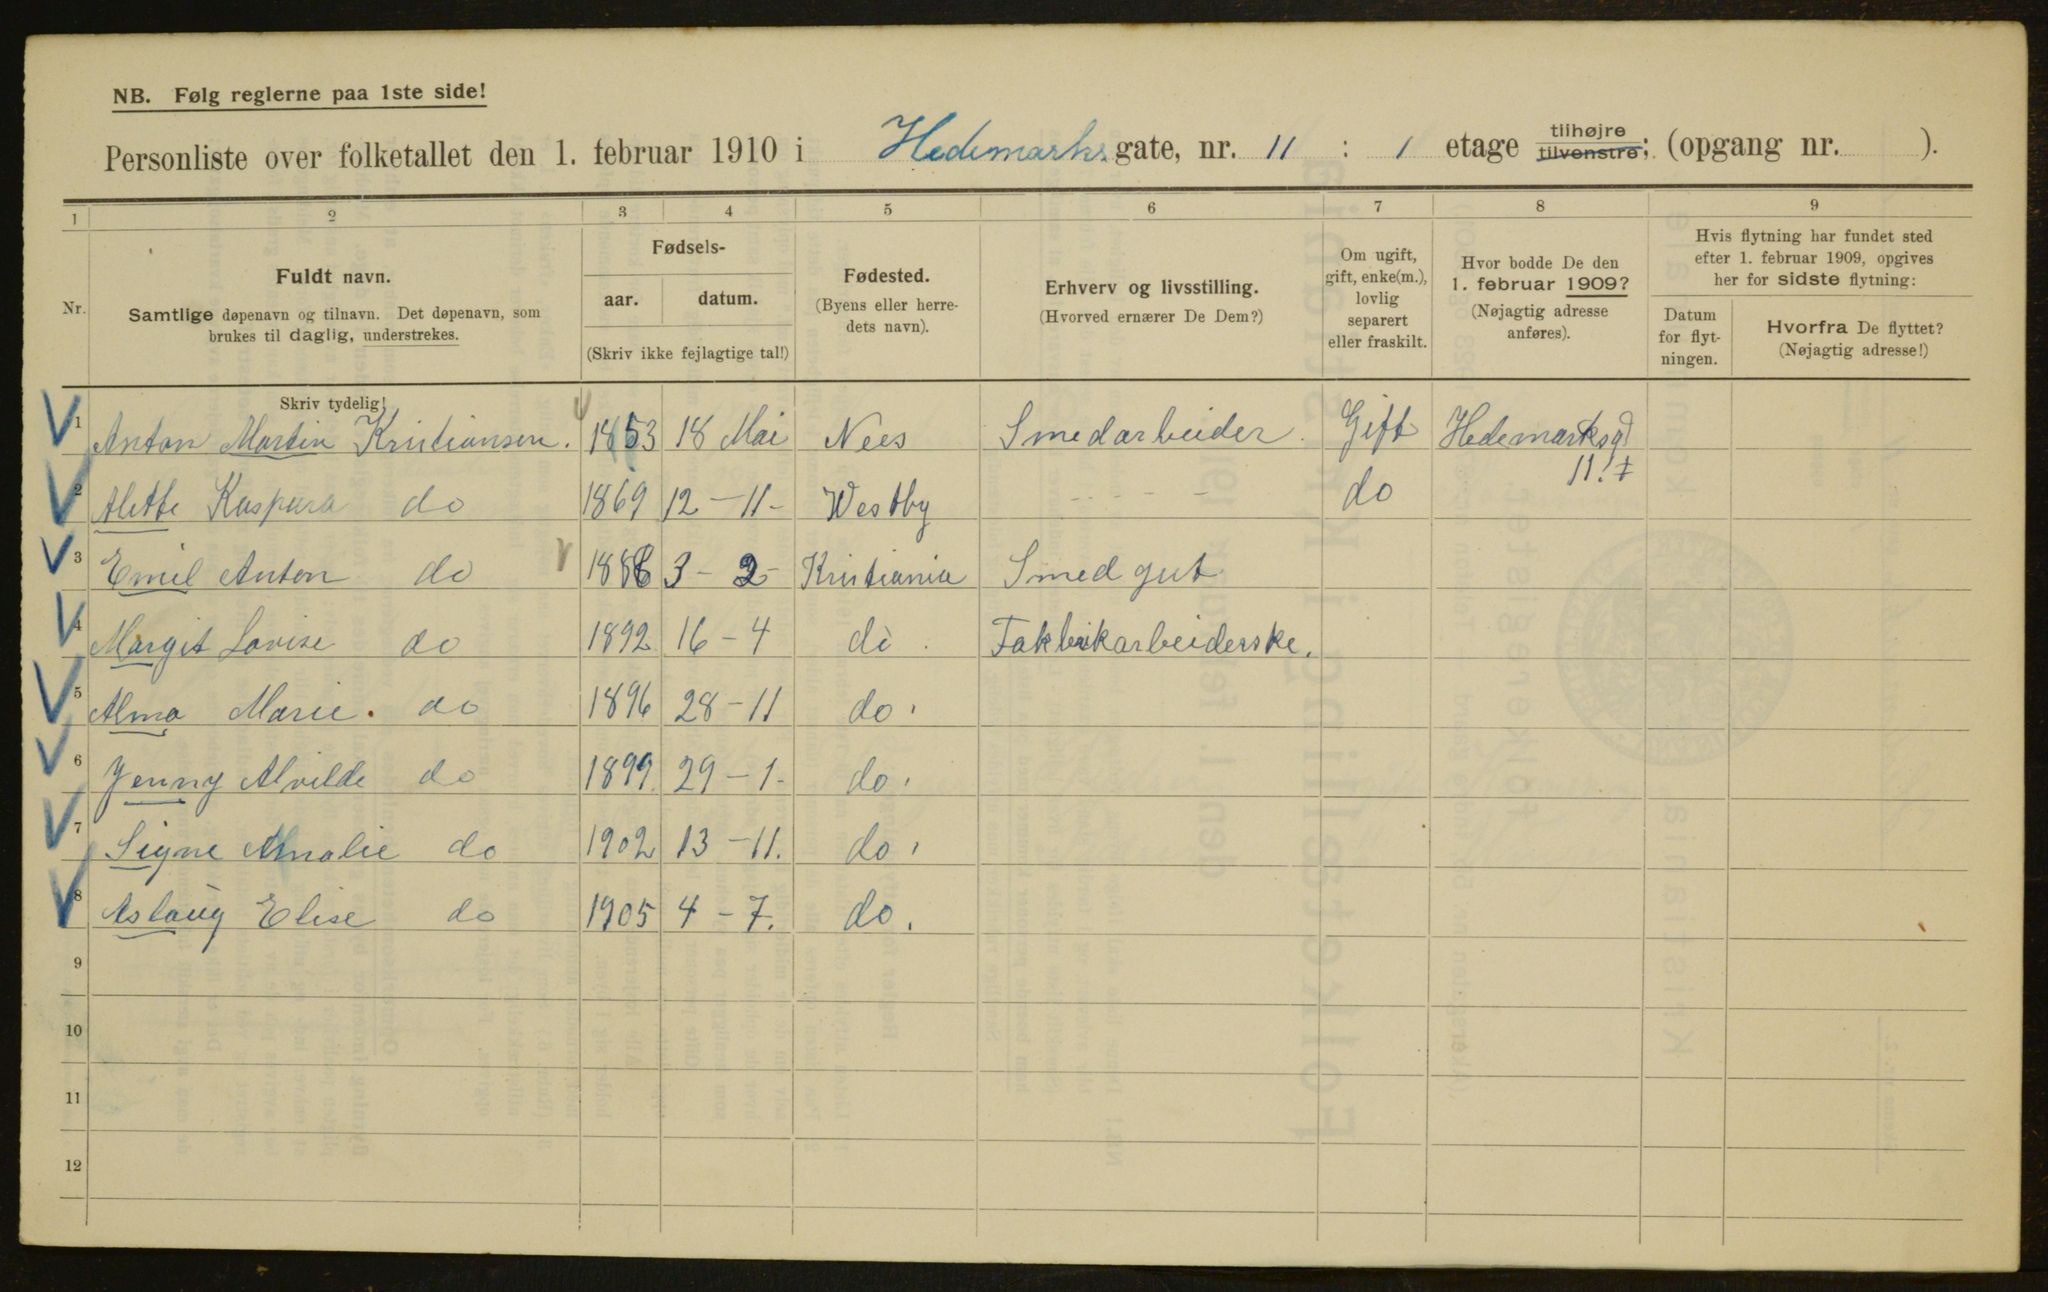 NB. Følg reglerne paa 1ste side!
Personliste over folketallet den 1. februar 1910 i Hedemarks gate, nr. 11 : 1 etage tilhøjre tilvenstre; (opgang nr. ).
1 2 3 4 5 6 7 8 9
Nr.
Fuldt navn.
Samtlige døpenavn og tilnavn. Det døpenavn, som
brukes til daglig, understrekes.
Fødsels-
aar. datum.
(Skriv ikke fejlagtige tal!)
Fødested.
(Byens eller herre-
dets navn).
Erhverv og livsstilling.
(Hvorved ernærer De Dem?)
Om ugift,
gift, enke(m.),
lovlig
separert
eller fraskilt.
Hvor bodde De den
1. februar 1909?
(Nøjagtig adresse
anføres).
Hvis flytning har fundet sted
efter 1. februar 1909, opgives
her for sidste flytning:
Datum
for flyt-
ningen.
Hvorfra De flyttet?
(Nøjagtig adresse!)
Skriv tydelig!
1 Anton Martin Kristiansen. 1853 18 Mai Nees Smedarbeider. Gift Hedemarksg
11!
2 Alette Kaspara do 1869 12 - 11 - Westby - - - - do
3 Emil Anton do 1888 3 - 2 - Kristiania Smedgut
4 Margit Lovise do 1892 16 - 4 do. Fakbrikarbeiderske.
5 Alma Marie. do 1896 28 - 11 do.
6 Jenny Alvilde do 1899. 29 - 1 - do.
7 Signe Amalie do 1902 13 - 11. do.
8 Aslaug Elise do 1905 4 - 7. do.
9
10
11
12